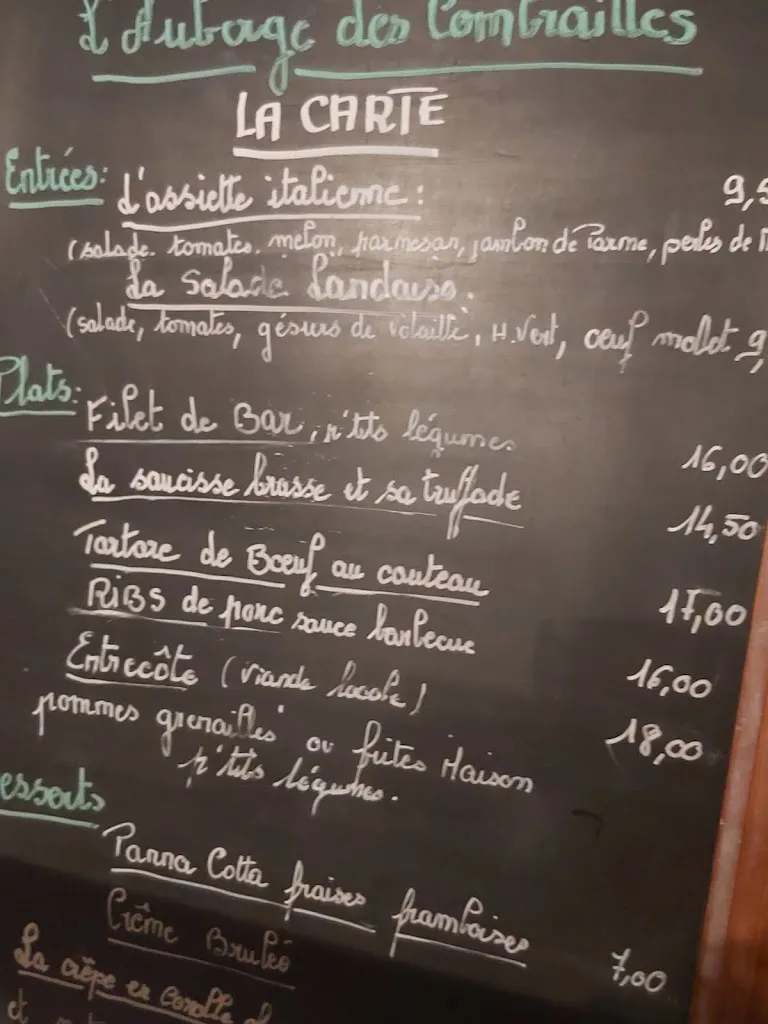 L'Auberge des Combrailles
LA CARTE
Entrées: L'assiette italienne: 9,5
(salade. tomates. melon, parmesan, jambon de Parme, perles de
La Salade Landaise.
(salade, tomates, gésiers de volaille, H.Vert, œuf mollet 9,
Plats:
Filet de Bar, p'tits légumes 16,00
La saucisse brasse et sa truffade 14,50
Tartare de Bœuf au couteau 17,00
RIBS de porc sauce barbecue 16,00
Entrecôte (viande locale) 18,00
pommes grenailles ou frites Maison
p'tits légumes.
esserts
Panna Cotta fraises framboises 7,00
Crème Brulée
La crêpe en corolle
et